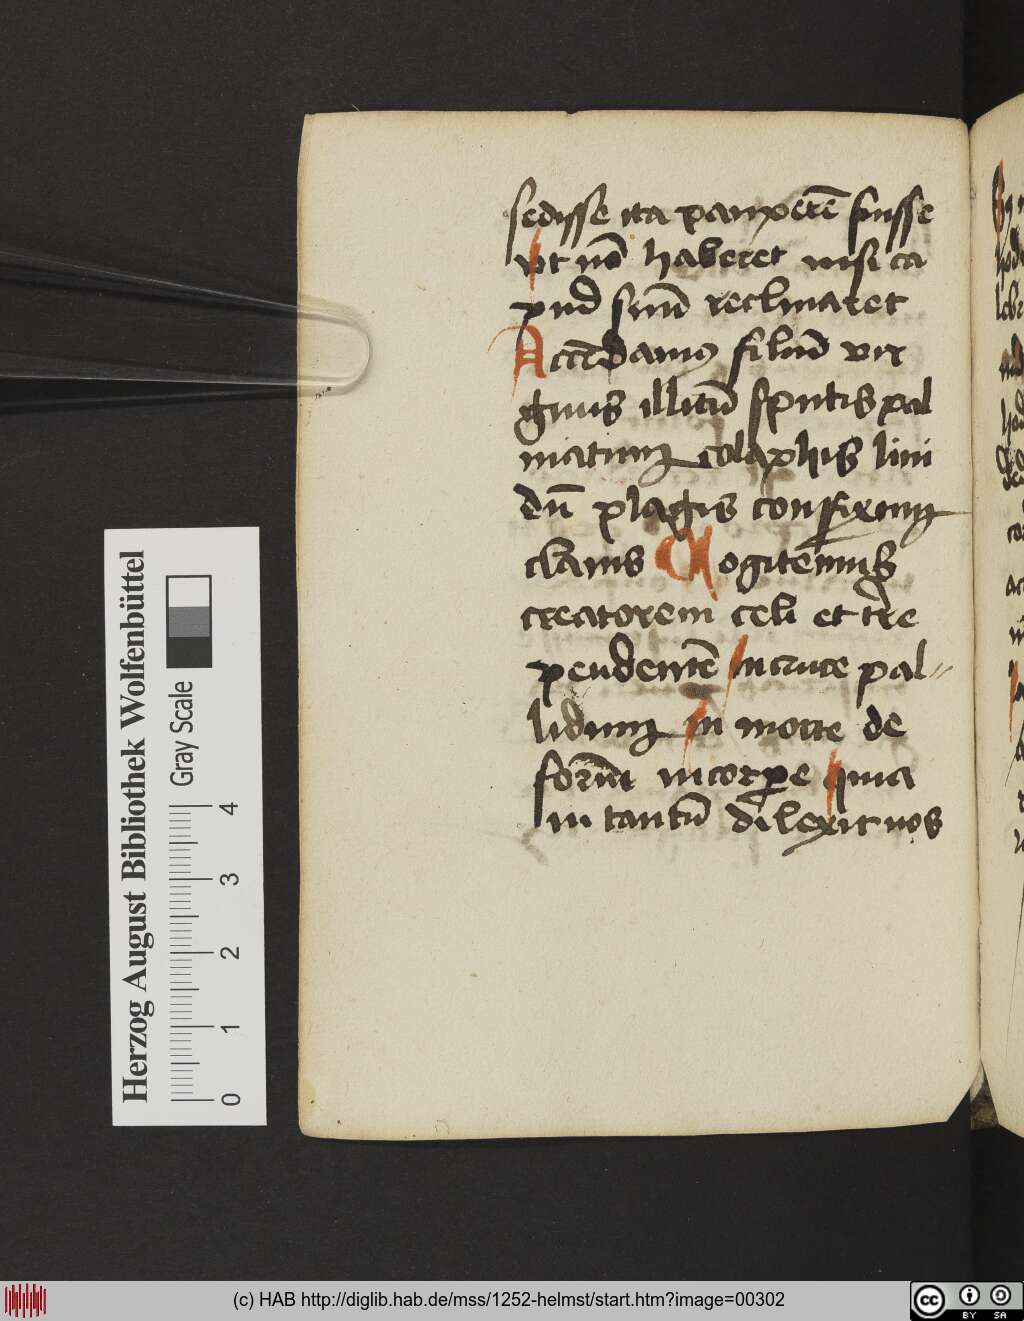 sedisse ita pauperē fuisse
vt nō haberet nisi ca
pud suū reclinaret
Accedamꝰ filiū vir
ginis illitū sputis pal
matum colaphis liui
dū plagis confixum
clauis Cogitemus
creatorem celi et t̄re
pendentē in cruce pal
lidum in morte de
formē in corpore quia
in tantū dilexit nos
Herzog August Bibliothek Wolfenbüttel
Gray Scale
0 1 2 3 4
(c) HAB http://diglib.hab.de/mss/1252-helmst/start.htm?image=00302
cc BY SA